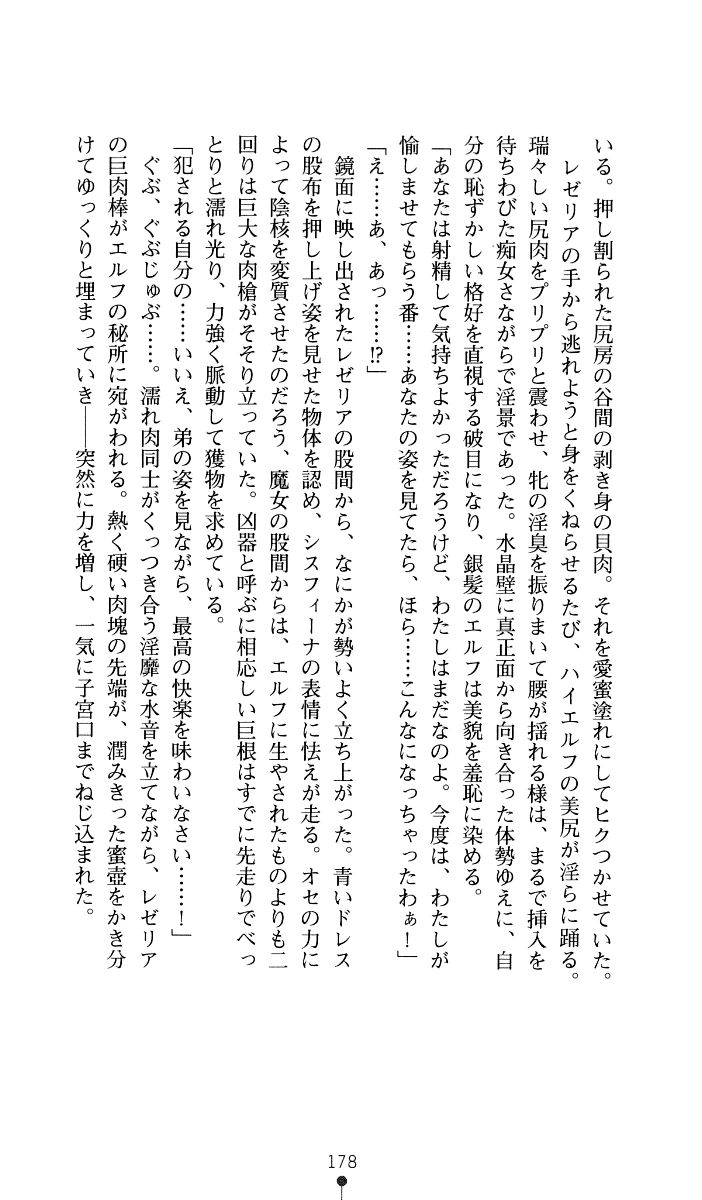 いる。押し割られた尻房の谷間の剥き身の貝肉。それを愛蜜塗れにしてヒクつかせていた。
レゼリアの手から逃れようと身をくねらせるたび、ハイエルフの美尻が淫らに踊る。
瑞々しい尻肉をプリプリと震わせ、牝の淫臭を振りまいて腰が揺れる様は、まるで挿入を
待ちわびた痴女さながらで淫景であった。水晶壁に真正面から向き合った体勢ゆえに、自
分の恥ずかしい格好を直視する破目になり、銀髪のエルフは美貌を羞恥に染める。
「あなたは射精して気持ちよかっただろうけど、わたしはまだなのよ。今度は、わたしが
愉しませてもらう番……あなたの姿を見てたら、ほら……こんなになっちゃったわぁ！」
「え……あ、あっ……!?」
鏡面に映し出されたレゼリアの股間から、なにかが勢いよく立ち上がった。青いドレス
の股布を押し上げ姿を見せた物体を認め、シスフィーナの表情に怯えが走る。オセの力に
よって陰核を変質させたのだろう、魔女の股間からは、エルフに生やされたものよりも二
回りは巨大な肉槍がそそり立っていた。凶器と呼ぶに相応しい巨根はすでに先走りでべっ
とりと濡れ光り、力強く脈動して獲物を求めている。
「犯される自分の……いいえ、弟の姿を見ながら、最高の快楽を味わいなさい……！」
ぐぶ、ぐぶじゅぶ……。濡れ肉同士がくっつき合う淫靡な水音を立てながら、レゼリア
の巨肉棒がエルフの秘所に宛がわれる。熱く硬い肉塊の先端が、潤みきった蜜壺をかき分
けてゆっくりと埋まっていき――突然に力を増し、一気に子宮口までねじ込まれた。
178